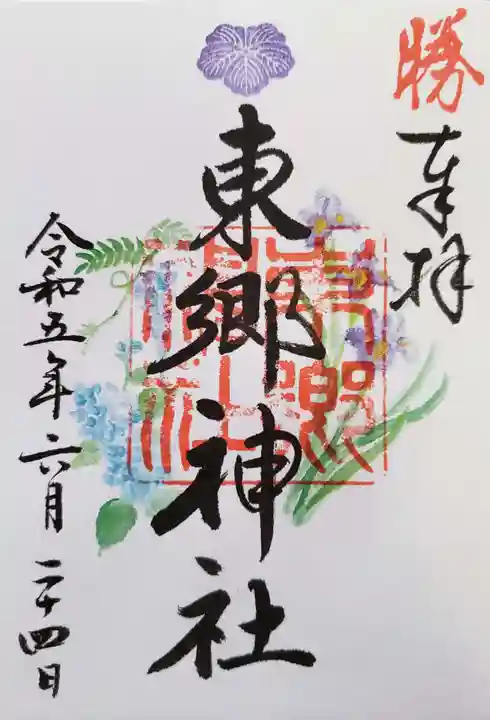 勝
奉拝
東郷神社
東郷神社
令和五年六月二十四日